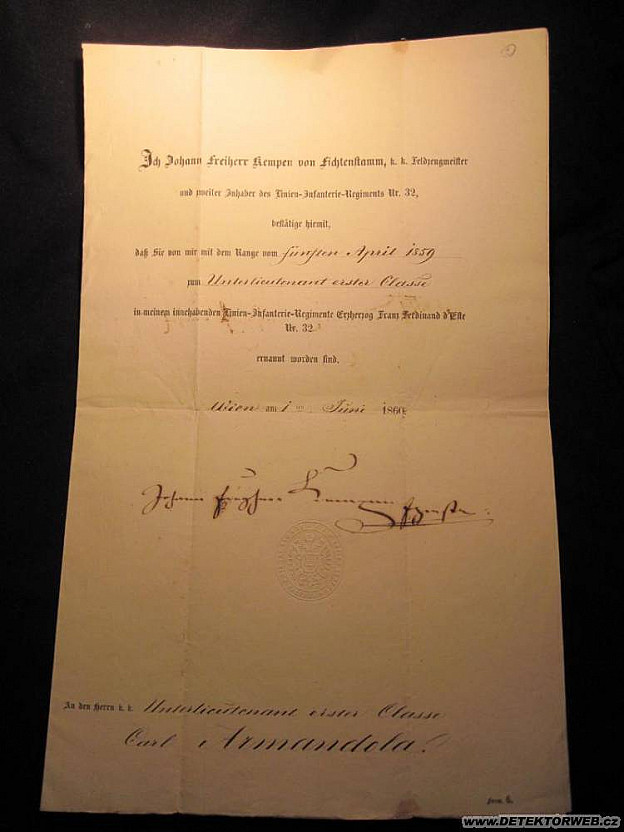 Ich Johann Freiherr Kempen von Fichtenstamm, k. k. Feldzeugmeister
und zweiter Inhaber des Linien-Infanterie-Regiments Nr. 32,
bestätige hiemit,
daß Sie von mir mit dem Range vom fünften April 1859
zum Unterlieutenant erster Classe
in meinem innehabenden Linien-Infanterie-Regimente Erzherzog Franz Ferdinand d'Este
Nr. 32
ernannt worden sind.
Wien am 1ten Juni 1860.
Johann Freyherr Kempen
An den Herrn k. k. Unterlieutenant erster Classe
Carl Armandola.
www.DETEKTORWEB.cz